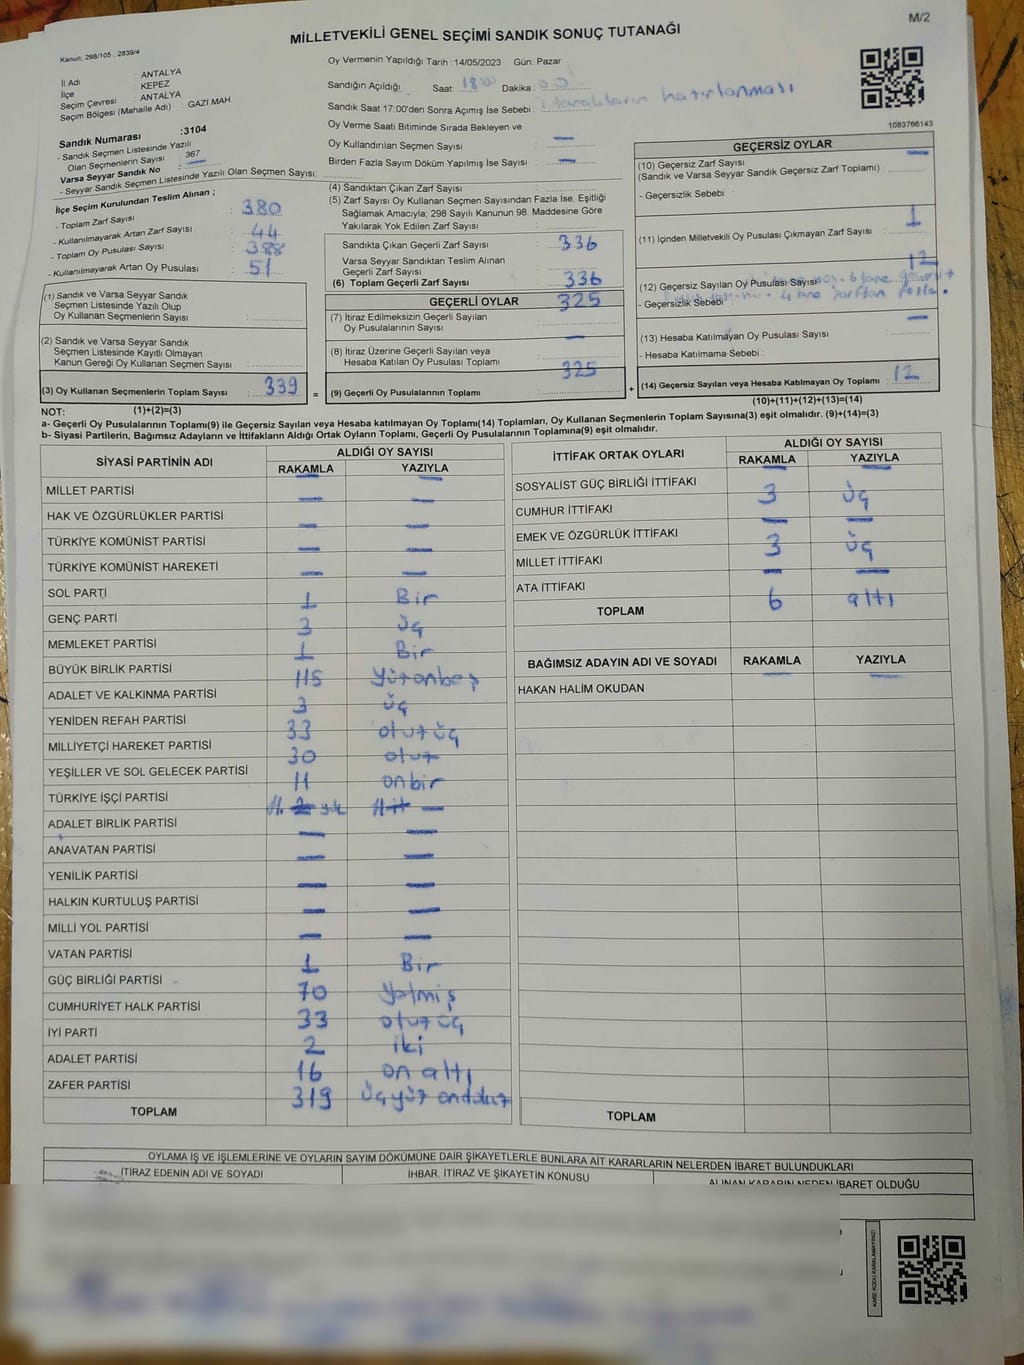 M/2
MİLLETVEKİLİ GENEL SEÇİMİ SANDIK SONUÇ TUTANAĞI
Kanun: 298/105 , 2839/4
İl Adı : ANTALYA
İlçe : KEPEZ
Seçim Çevresi : ANTALYA
Seçim Bölgesi (Mahalle Adı) : GAZI MAH.
Sandık Numarası :3104
- Sandık Seçmen Listesinde Yazılı
Olan Seçmenlerin Sayısı : 367
Varsa Seyyar Sandık No : —
- Seyyar Sandık Seçmen Listesinde Yazılı Olan Seçmen Sayısı:
Oy Vermenin Yapıldığı Tarih :14/05/2023 Gün: Pazar
Sandığın Açıldığı Saat: 18:00 Dakika: 00
Sandık Saat 17:00'den Sonra Açımış İse Sebebi : hazırlanması
Oy Verme Saati Bitiminde Sırada Bekleyen ve
Oy Kullandırılan Seçmen Sayısı : —
Birden Fazla Sayım Döküm Yapılmış İse Sayısı : —
1083766143
İlçe Seçim Kurulundan Teslim Alınan ;
- Toplam Zarf Sayısı : 380
- Kullanılmayarak Artan Zarf Sayısı : 44
- Toplam Oy Pusulası Sayısı : 388
- Kullanılmayarak Artan Oy Pusulası : 51
(1) Sandık ve Varsa Seyyar Sandık
Seçmen Listesinde Yazılı Olup
Oy Kullanan Seçmenlerin Sayısı :
(2) Sandık ve Varsa Seyyar Sandık
Seçmen Listesinde Kayıtlı Olmayan
Kanun Gereği Oy Kullanan Seçmen Sayısı :
(3) Oy Kullanan Seçmenlerin Toplam Sayısı : 339
(4) Sandıktan Çıkan Zarf Sayısı :
(5) Zarf Sayısı Oy Kullanan Seçmen Sayısından Fazla İse, Eşitliği
Sağlamak Amacıyla; 298 Sayılı Kanunun 98. Maddesine Göre
Yakılarak Yok Edilen Zarf Sayısı :
Sandıkta Çıkan Geçerli Zarf Sayısı : 336
Varsa Seyyar Sandıktan Teslim Alınan
Geçerli Zarf Sayısı :
(6) Toplam Geçerli Zarf Sayısı : 336
GEÇERLİ OYLAR
(7) İtiraz Edilmeksizin Geçerli Sayılan : 325
Oy Pusulalarının Sayısı
(8) İtiraz Üzerine Geçerli Sayılan veya : —
Hesaba Katılan Oy Pusulası Toplamı
(9) Geçerli Oy Pusulalarının Toplamı : 325
GEÇERSİZ OYLAR
(10) Geçersiz Zarf Sayısı —
(Sandık ve Varsa Seyyar Sandık Geçersiz Zarf Toplamı) :
- Geçersizlik Sebebi :
(11) İçinden Milletvekili Oy Pusulası Çıkmayan Zarf Sayısı : 1
(12) Geçersiz Sayılan Oy Pusulası Sayısı : 12
- Geçersizlik Sebebi : 6 tane
4 tane zarftan fazla.
(13) Hesaba Katılmayan Oy Pusulası Sayısı : —
- Hesaba Katılmama Sebebi :
= + (14) Geçersiz Sayılan veya Hesaba Katılmayan Oy Toplamı : 12
NOT: (1)+(2)=(3) (10)+(11)+(12)+(13)=(14)
a- Geçerli Oy Pusulalarının Toplamı(9) ile Geçersiz Sayılan veya Hesaba katılmayan Oy Toplamı(14) Toplamları, Oy Kullanan Seçmenlerin Toplam Sayısına(3) eşit olmalıdır. (9)+(14)=(3)
b- Siyasi Partilerin, Bağımsız Adayların ve İttifakların Aldığı Ortak Oyların Toplamı, Geçerli Oy Pusulalarının Toplamına(9) eşit olmalıdır.
SİYASİ PARTİNİN ADI ALDIĞI OY SAYISI
RAKAMLA YAZIYLA
MİLLET PARTİSİ — —
HAK VE ÖZGÜRLÜKLER PARTİSİ — —
TÜRKİYE KOMÜNİST PARTİSİ — —
TÜRKİYE KOMÜNİST HAREKETİ — —
SOL PARTİ — —
GENÇ PARTİ 1 Bir
MEMLEKET PARTİSİ 3 üç
BÜYÜK BİRLİK PARTİSİ 1 Bir
ADALET VE KALKINMA PARTİSİ 115 yüzonbeş
YENİDEN REFAH PARTİSİ 3 üç
MİLLİYETÇİ HAREKET PARTİSİ 33 otuzüç
YEŞİLLER VE SOL GELECEK PARTİSİ 30 otuz
TÜRKİYE İŞÇİ PARTİSİ 11 onbir
ADALET BİRLİK PARTİSİ —
ANAVATAN PARTİSİ — —
YENİLİK PARTİSİ — —
HALKIN KURTULUŞ PARTİSİ — —
MİLLİ YOL PARTİSİ — —
VATAN PARTİSİ — —
GÜÇ BİRLİĞİ PARTİSİ 1 Bir
CUMHURİYET HALK PARTİSİ 70 yetmiş
İYİ PARTİ 33 otuz üç
ADALET PARTİSİ 2 iki
ZAFER PARTİSİ 16 on altı
TOPLAM 319 üçyüz ondokuz
İTTİFAK ORTAK OYLARI ALDIĞI OY SAYISI
RAKAMLA YAZIYLA
SOSYALİST GÜÇ BİRLİĞİ İTTİFAKI — —
CUMHUR İTTİFAKI 3 üç
EMEK VE ÖZGÜRLÜK İTTİFAKI — —
MİLLET İTTİFAKI 3 üç
ATA İTTİFAKI — —
TOPLAM 6 altı
BAĞIMSIZ ADAYIN ADI VE SOYADI RAKAMLA YAZIYLA
HAKAN HALIM OKUDAN — —
TOPLAM
OYLAMA İŞ VE İŞLEMLERİNE VE OYLARIN SAYIM DÖKÜMÜNE DAİR ŞİKAYETLERLE BUNLARA AİT KARARLARIN NELERDEN İBARET BULUNDUKLARI
İTİRAZ EDENİN ADI VE SOYADI İHBAR, İTİRAZ VE ŞİKAYETİN KONUSU ALINAN KARARIN NEDEN İBARET OLDUĞU
KARE KODU KARALAMAYINIZ!